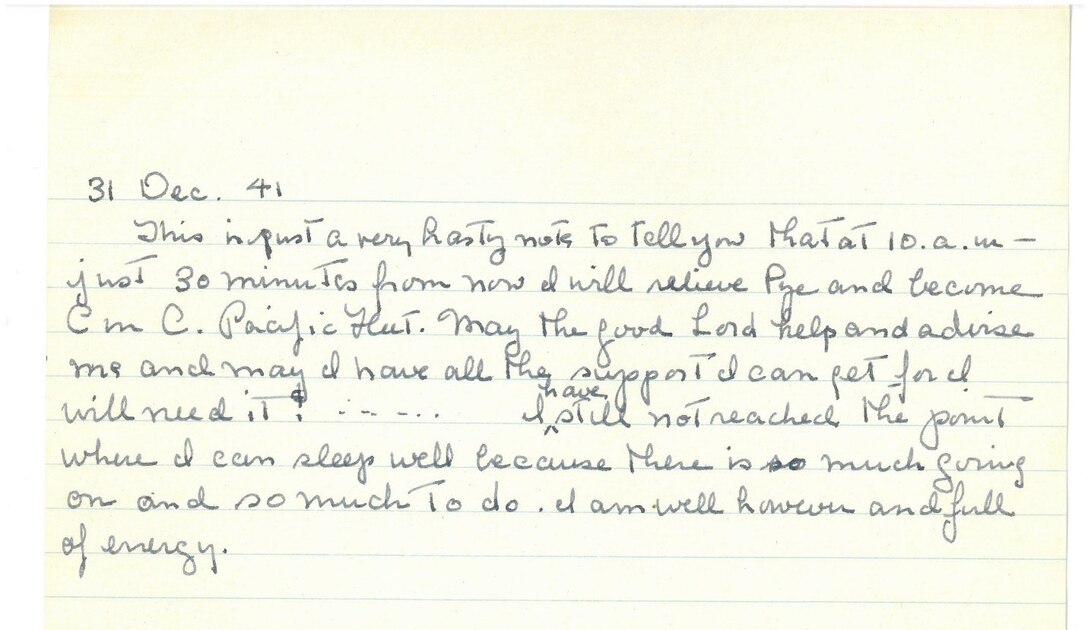 31 Dec. 41
This is just a very hasty note to tell you that at 10.a.m –
just 30 minutes from now I will relieve Pye and become
C in C. Pacific Fleet. May the good Lord help and advise
me and may I have all the support I can get for I
will need it! ..--... I have still not reached the point
where I can sleep well because there is so much going
on and so much to do. I am well however and full
of energy.